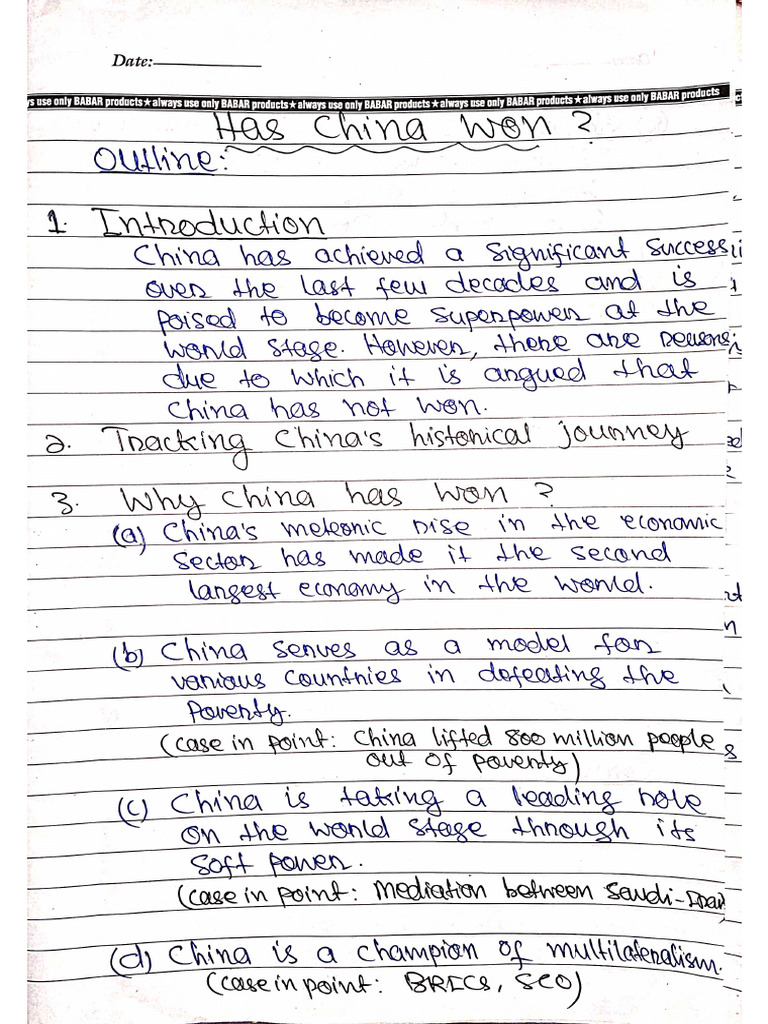 Date:
ys use only BABAR products★always use only BABAR products★always use only BABAR products★always use only BABAR products★always use only BABAR products
Has China Won ?
Outline:
1. Introduction
China has achieved a significant success
over the last few decades and is
poised to become superpower at the
world stage. However, there are reasons
due to which it is argued that
China has not won.
2. Tracking China's historical journey
3. Why China has won ?
(a) China's meteoric rise in the economic
sector has made it the second
largest economy in the world.
(b) China serves as a model for
various countries in defeating the
poverty.
(case in point: China lifted 800 million people
out of poverty)
(c) China is taking a leading role
on the world stage through its
soft power.
(case in point: Mediation between Saudi-Iran
(d) China is a champion of multilateralism.
(case in point: BRICS, SCO)